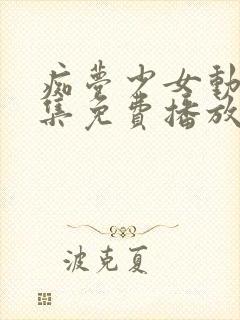 痴夢少女動
集免費播放
波克夏